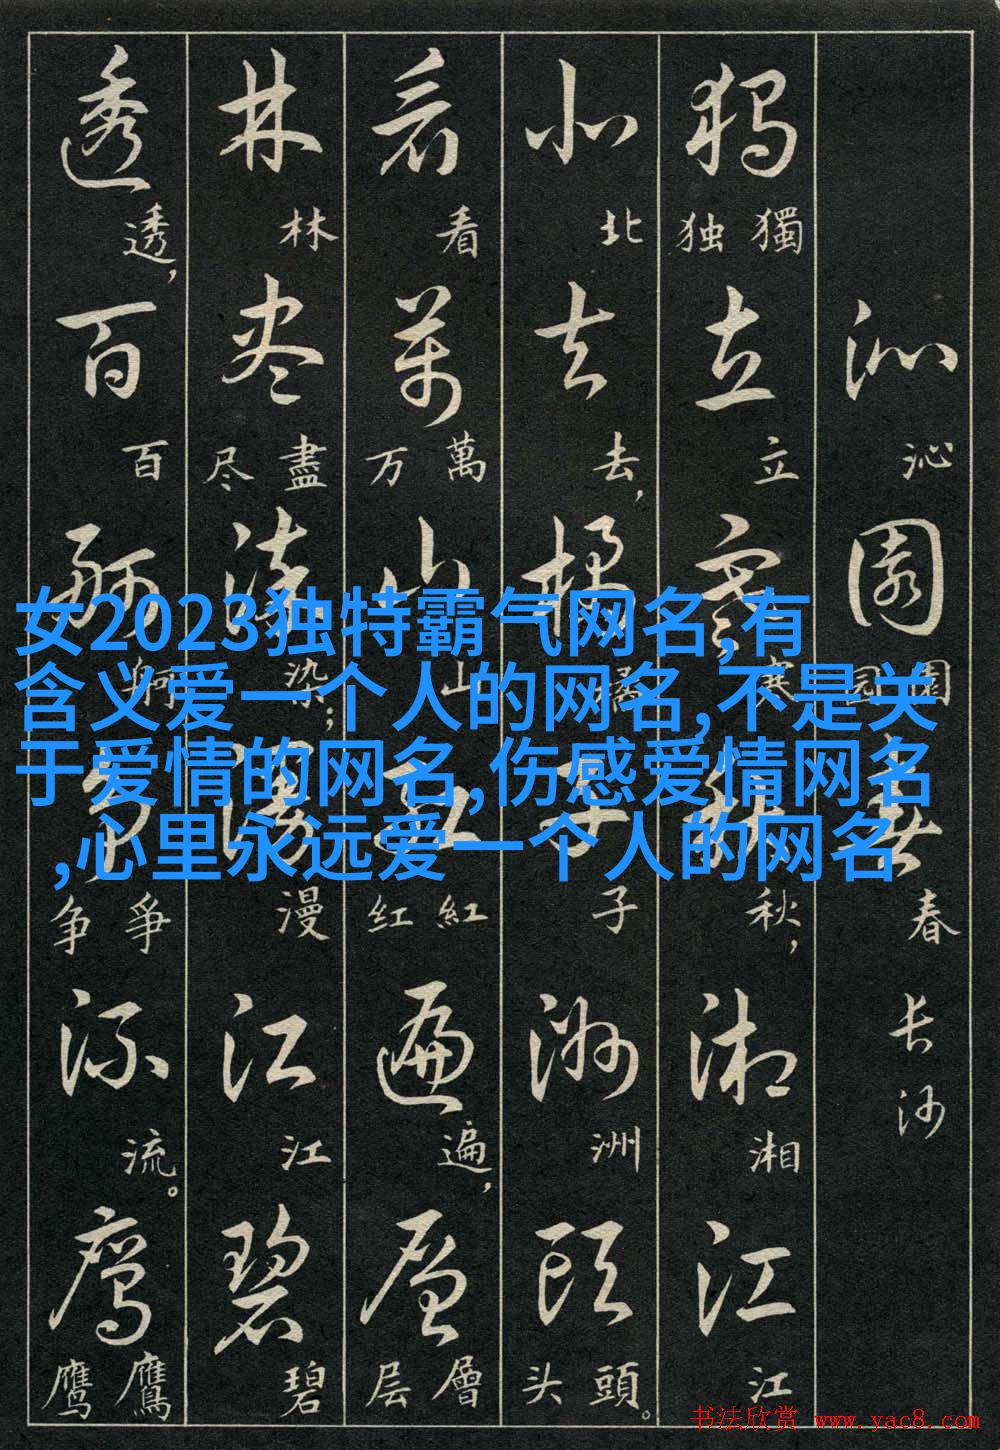 沁園春
沁 园園 春
长沙
獨立寒秋湘江
独獨 立 寒 秋, 湘 江
北去橘子洲頭
北 去, 橘 子 洲 头頭。
看萬山紅遍層
看 万萬 山 红紅 遍, 层層
林盡染漫江碧
林 尽盡 染; 漫 江 碧
透百舸爭流鷹
透, 百 舸 争爭 流。 鹰鷹
女2023独特霸气网名,有
含义爱一个人的网名,不是关
于爱情的网名,伤感爱情网名
,心里永远爱一个人的网名
书法欣赏 www.yac8.com